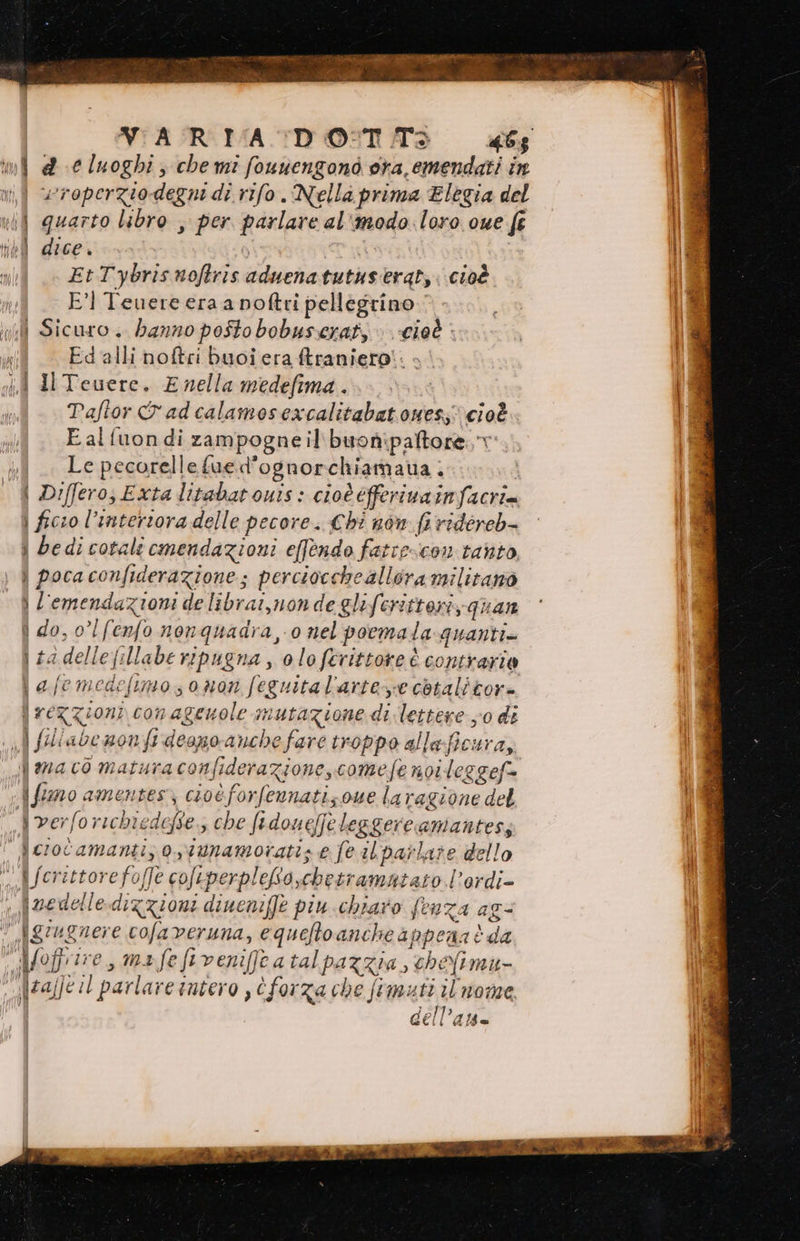 VARIA DOTTA 463
d e luoghi, che mi souuengonò ora, emendati in
Properzio degni di riso. Nella prima Elegia del
quarto libro, per parlare al modo loro oue si
dice.
Et Tybris nostris aduena tutus erat, cioè
E'l Teuere era a nostri pellegrino
Sicuro. hanno posto bobus erat, cioè
Ed alli nostri buoi era straniero
Il Teuere. E nella medesima.
Pastor & ad calamos excalitabat oues, cioè
E al suon di zampogne il buon pastore
Le pecorelle sue d'ognor chiamaua.
Differo, Exta litabat ouis: cioè offeriua in sacri-
ficio l'interiora delle pecore. Chi nòn si ridereb-
be di cotali emendazioni essendo fatte con tanto
poca considerazione; perciocche allora militano
l'emendazioni de librai, non de gli scrittori, quan
do, o'l senso non quadra, o nel poema la quanti-
tà delle sillabe ripugna, o lo scrittore è contrario
a se medesimo, o non seguita l'arte, e cotali cor-
rezzioni con ageuole mutazione di lettere, o di
sillabe non si deono anche fare troppo alla sicura,
ma cò matura considerazione, come se noi leggess-
simo amentes, cioè forsennati, oue la ragione del
verso richiedesse, che si douesse leggere amantes,
cioè amanti, o, innamorati; e se il parlare dello
scrittore fosse così perplesso, che tramutato l'ordi-
ne delle dizzioni diuenisse piu chiaro senza ag-
giugnere cosa veruna, e questo anche appena è da
soffrire, ma se si venisse a tal pazzia, che si mu-
tasse il parlare intero, è forza che si muti il nome
dell'au-